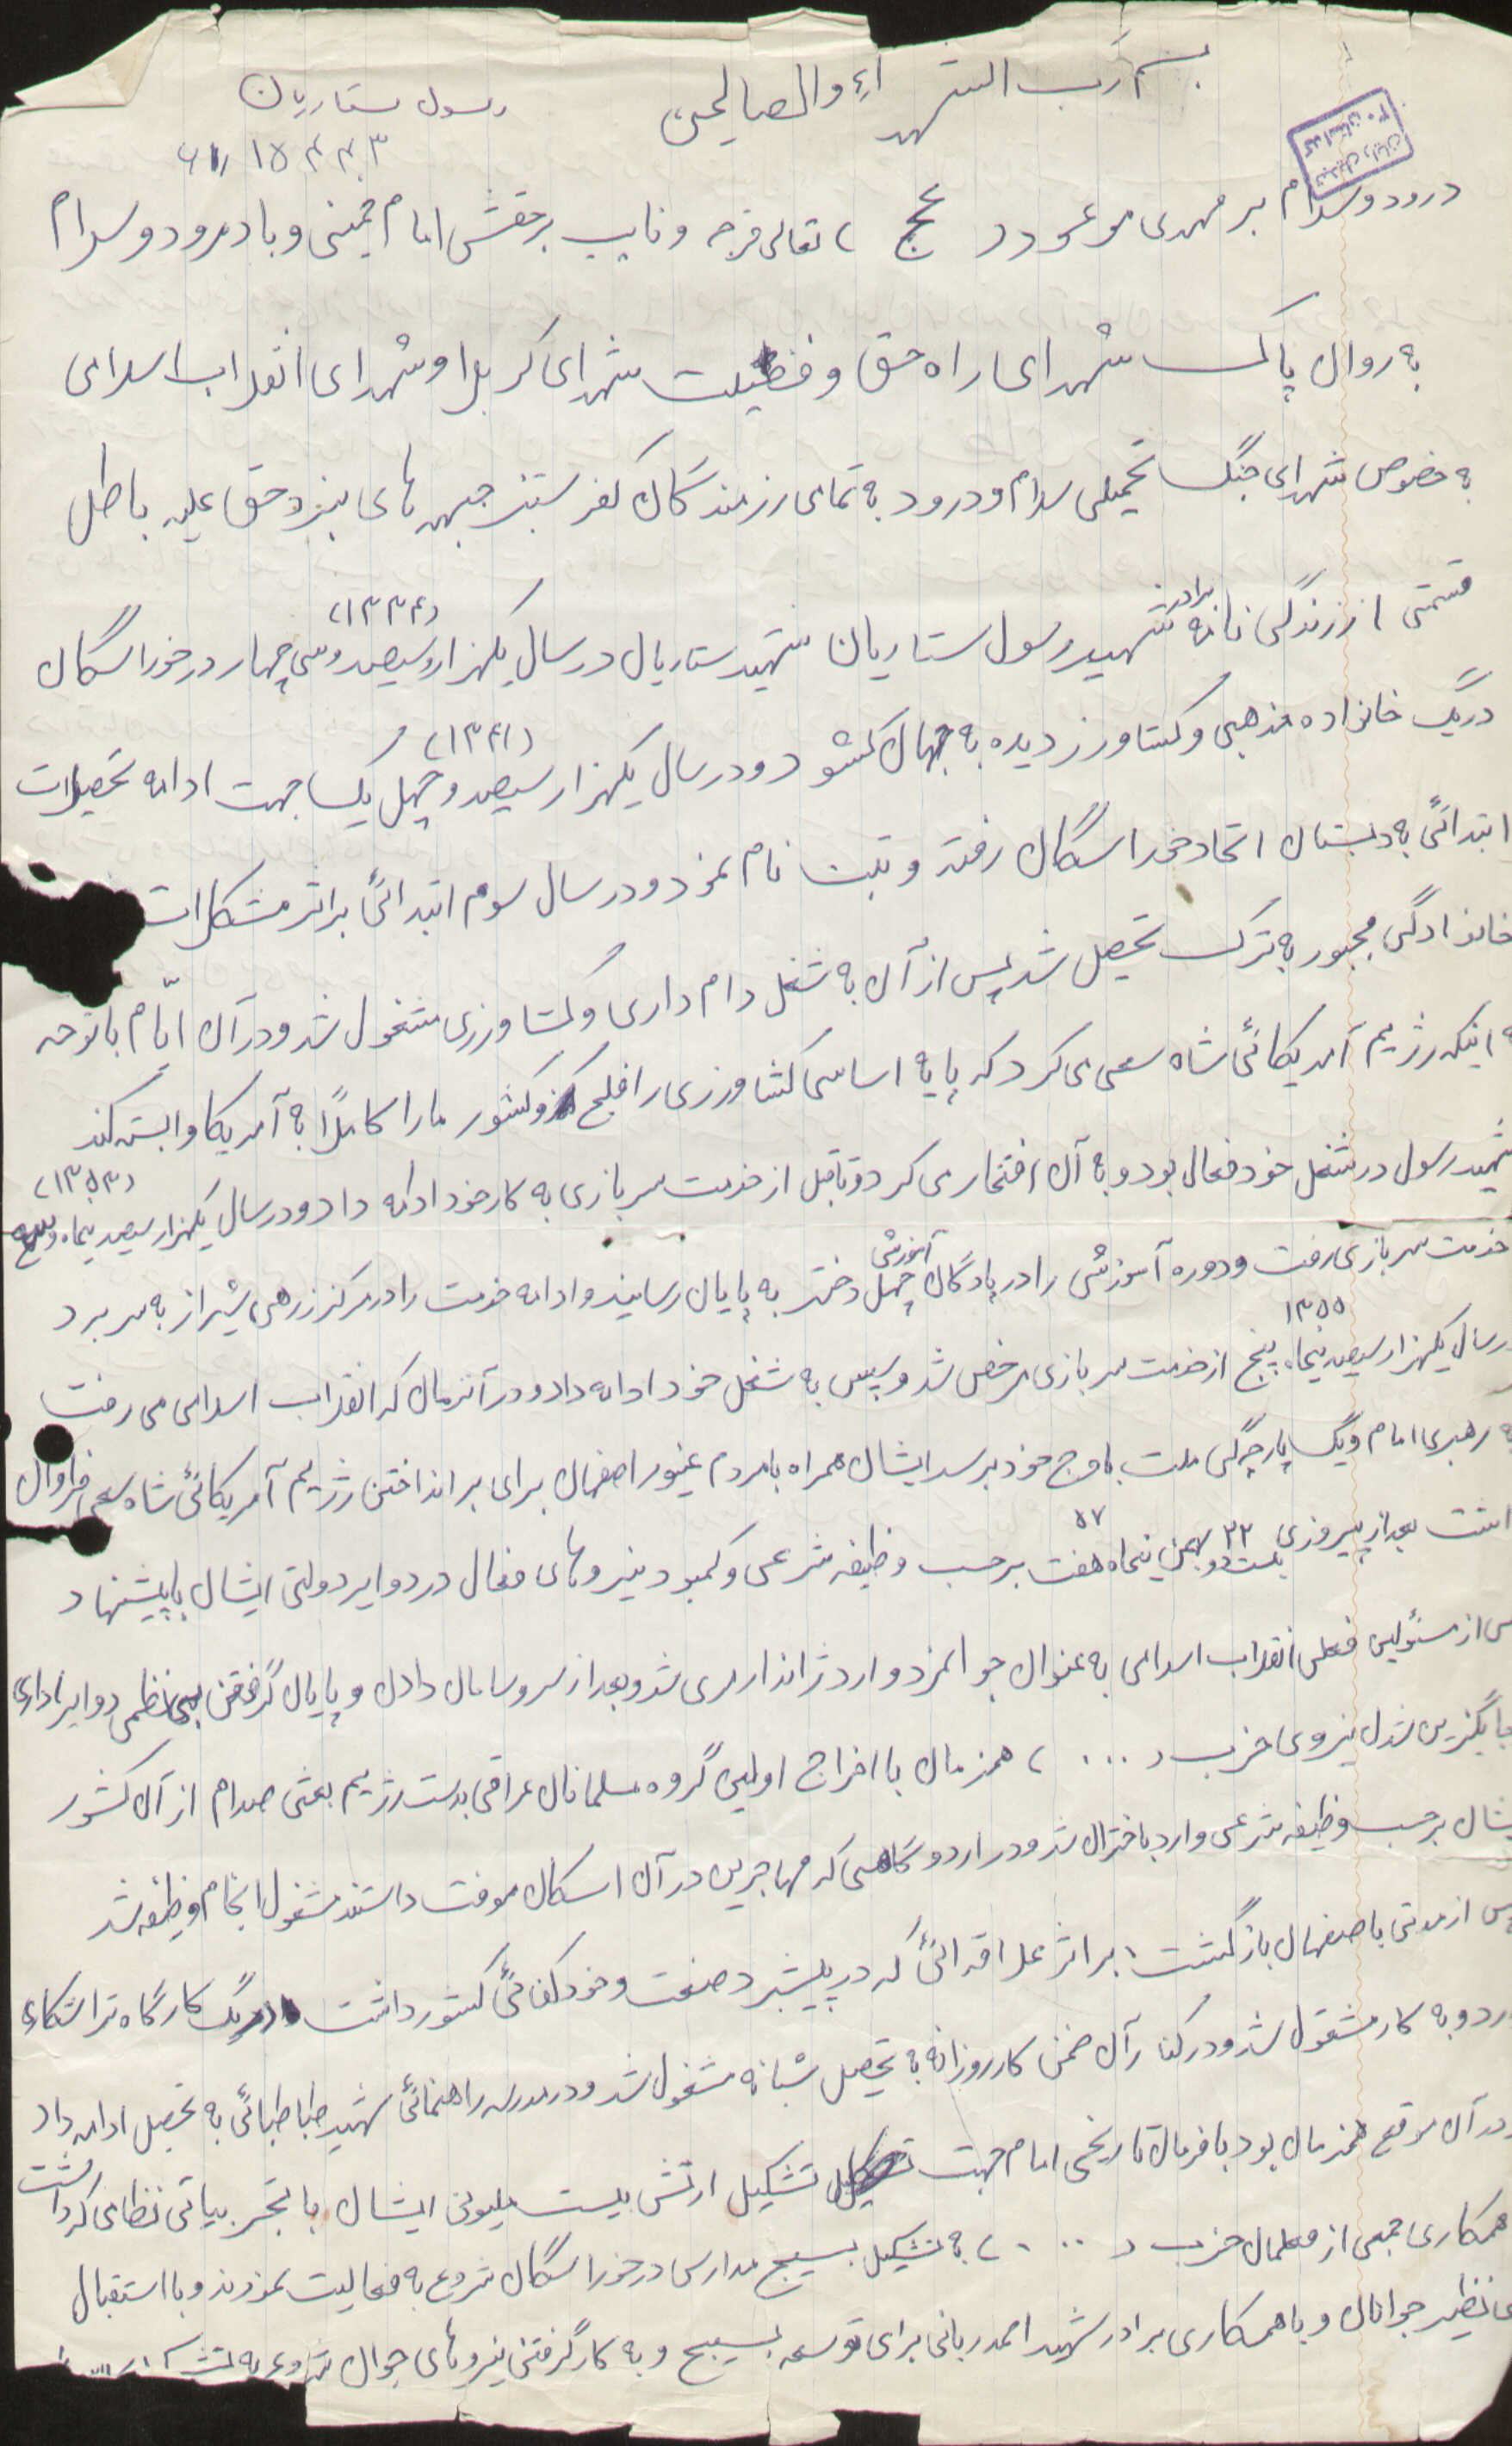 بسم رب الشهداء والصالحین
رسول ستاریان
۱۵۴۴۳
درود و سلام بر مهدی موعود (عج) تعالی فرجه و نایب برحقش امام خمینی و با درود و سلام
به روان پاک شهدای راه حق و فضیلت شهدای کربلا و شهدای انقلاب اسلامی
به خصوص شهدای جنگ تحمیلی سلام و درود به تمامی رزمندگان کفر ستیز جبهه های نبرد حق علیه باطل
قسمتی از زندگی نامه برادر شهید رسول ستاریان شهید ستاریان در سال یکهزار و سیصد و سی چهار (۱۳۳۴) در خوراسگان
در یک خانواده مذهبی و کشاورز دیده به جهان گشود و در سال یکهزار سیصد و چهل یک (۱۳۴۱) جهت ادامه تحصیلات
ابتدائی به دبستان اتحاد خوراسگان رفته و ثبت نام نمود و در سال سوم ابتدائی بر اثر مشکلات
خانوادگی مجبور به ترک تحصیل شد پس از آن به شغل دام داری و کشاورزی مشغول شد و در آن ایّام با توجه
به اینکه رژیم آمریکائی شاه سعی می کرد که پایه اساسی کشاورزی را فلج کند و کشور ما را کاملاً به آمریکا وابسته کند
شهید رسول در شغل خود فعال بود و به آن افتخار می کرد و تا قبل از خدمت سربازی به کار خود ادامه داد و در سال یکهزار سیصد پنجاه و سه (۱۳۵۳)
خدمت سربازی رفت و دوره آموزشی را در پادگان آموزشی چهل دختر به پایان رسانید و ادامه خدمت را در مرکز زرهی شیراز به سر برد
در سال یکهزار سیصد پنجاه پنج ۱۳۵۵ از خدمت سربازی مرخص شد و سپس به شغل خود ادامه داد و در آنزمان که انقلاب اسلامی می رفت
به رهبری امام و یک پارچگی ملت به اوج خود برسد ایشان همراه با مردم غیور اصفهان برای برانداختن رژیم آمریکائی شاه سعی فراوان
داشت بعد از پیروزی ۲۲ بیست دو بهمن پنجاه هفت ۵۷ برحسب وظیفه شرعی و کمبود نیروهای فعال در دوایر دولتی ایشان با پیشنهاد
پس از مسئولین فعلی انقلاب اسلامی به عنوان جوانمرد وارد ژاندارمری شد و بعد از سر و سامان دادن و پایان گرفتن بی نظمی دوایر اداری
جایگزین شدن نیروی حزب (...) همزمان با اخراج اولین گروه مسلمانان عراقی بدست رژیم بعثی صدام از آن کشور
ایشان برحسب وظیفه شرعی وارد باختران شد و در اردوگاهی که مهاجرین در آن اسکان موقت داشتند مشغول انجام وظیفه شد
پس از مدتی باصفهان بازگشت بر اثر علاقه ائی که در پیشبرد صنعت و خودکفائی کشور داشت در یک کارگاه تراشکاری
وارد و به کار مشغول شد و در کنار آن ضمن کار روزانه به تحصیل شبانه مشغول شد و در مدرسه راهنمائی شهید طباطبائی به تحصیل ادامه داد
و در آن موقع همزمان بود با فرمان تاریخی امام جهت تشکیل ارتش بیست ملیونی ایشان با تجربیاتی نظامی که داشت
همکاری جمعی از معلمان حزب (...) به تشکیل بسیج مدارس در خوراسگان شروع به فعالیت نمودند و با استقبال
بی نظیر جوانان و با همکاری برادر شهید احمد ربانی برای توسعه بسیج و به کار گرفتن نیروهای جوان شروع به